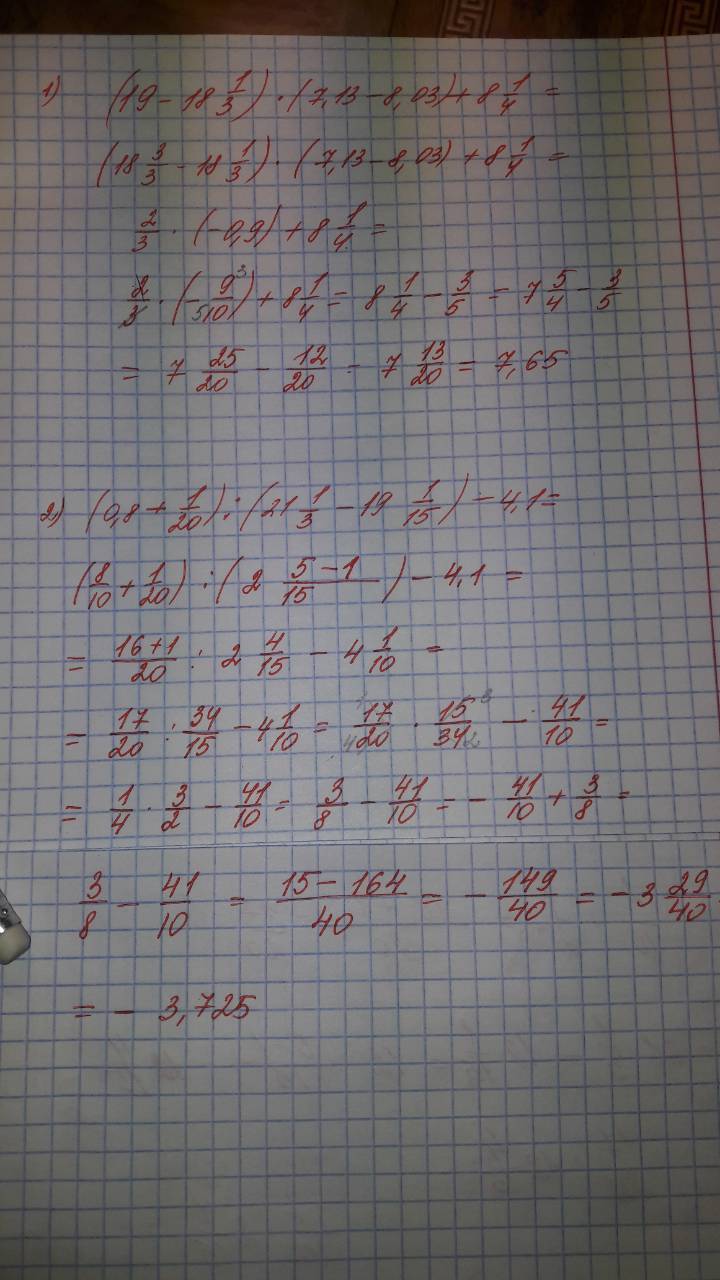 1) (19 − 18 1/3) · (7,13 − 8,03) + 8 1/4 =
(18 3/3 − 18 1/3) · (7,13 − 8,03) + 8 1/4 =
2/3 · (−0,9) + 8 1/4 =
2/3 · (− 9/10) 3 5 + 8 1/4 = 8 1/4 − 3/5 = 7 5/4 − 3/5
= 7 25/20 − 12/20 = 7 13/20 = 7,65
2) (0,8 + 1/20) : (21 1/3 − 19 1/15) − 4,1 =
(8/10 + 1/20) : (2 5−1/15) − 4,1 =
= 16+1/20 : 2 4/15 − 4 1/10 =
= 17/20 : 34/15 − 4 1/10 = 1 17/20 4 · 15/34 3 2 − 41/10 =
= 1/4 · 3/2 − 41/10 = 3/8 − 41/10 = − 41/10 + 3/8 =
3/8 − 41/10 = 15 − 164/40 = − 149/40 = − 3 29/40
= − 3,725